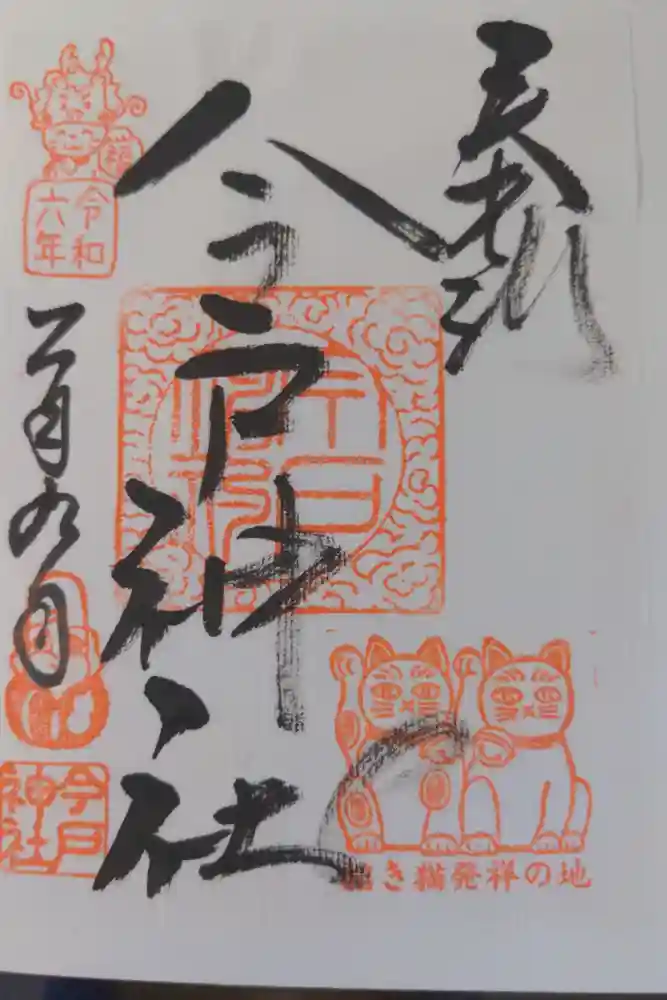 奉拝
今戸神社
令和
六年
二月九日
今戸
神社
招き猫発祥の地